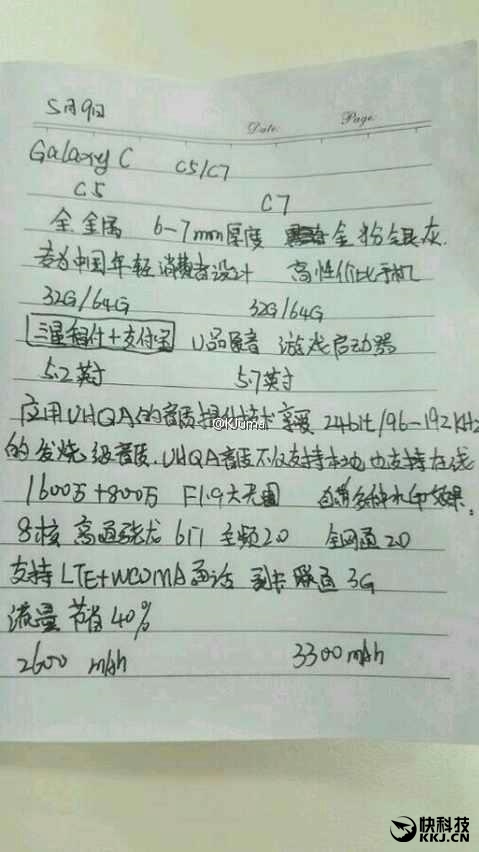 5月9日
Date. Page.
Galaxy C C5/C7
C5 C7
全金属 6-7mm厚度 金粉银灰.
专为中国年轻消费者设计 高性价比手机
32G/64G 32G/64G
三星智付+支付宝 U品音 游戏启动器
5.2英寸 5.7英寸
@KJuma
应用UHQA的音质提升技术享受 24bit/96-192KHz
的发烧级音质.UHQA音质不仅支持本地也支持在线
1600万+800万 F1.9大光圈 自带多种水印效果.
8核 高通骁龙 617 主频2.0 全网通2.0
支持LTE+WCDMA通话 副卡联通3G
流量节省40%
2600 mAh 3300mAh
快科技
KKJ.CN